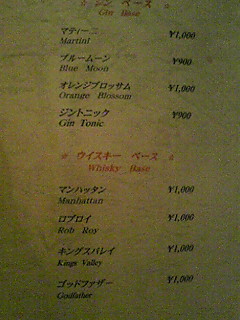 ☆ ジン ベース ☆
Gin Base
マティーニ ¥1,000
Martini
ブルームーン ¥900
Blue Moon
オレンジブロッサム ¥1,000
Orange Blossom
ジントニック ¥900
Gin Tonic
☆ ウイスキー ベース ☆
Whisky Base
マンハッタン ¥1,000
Manhattan
ロブロイ ¥1,000
Rob Roy
キングスバレイ ¥1,000
Kings Valley
ゴッドファザー ¥1,000
Godfather